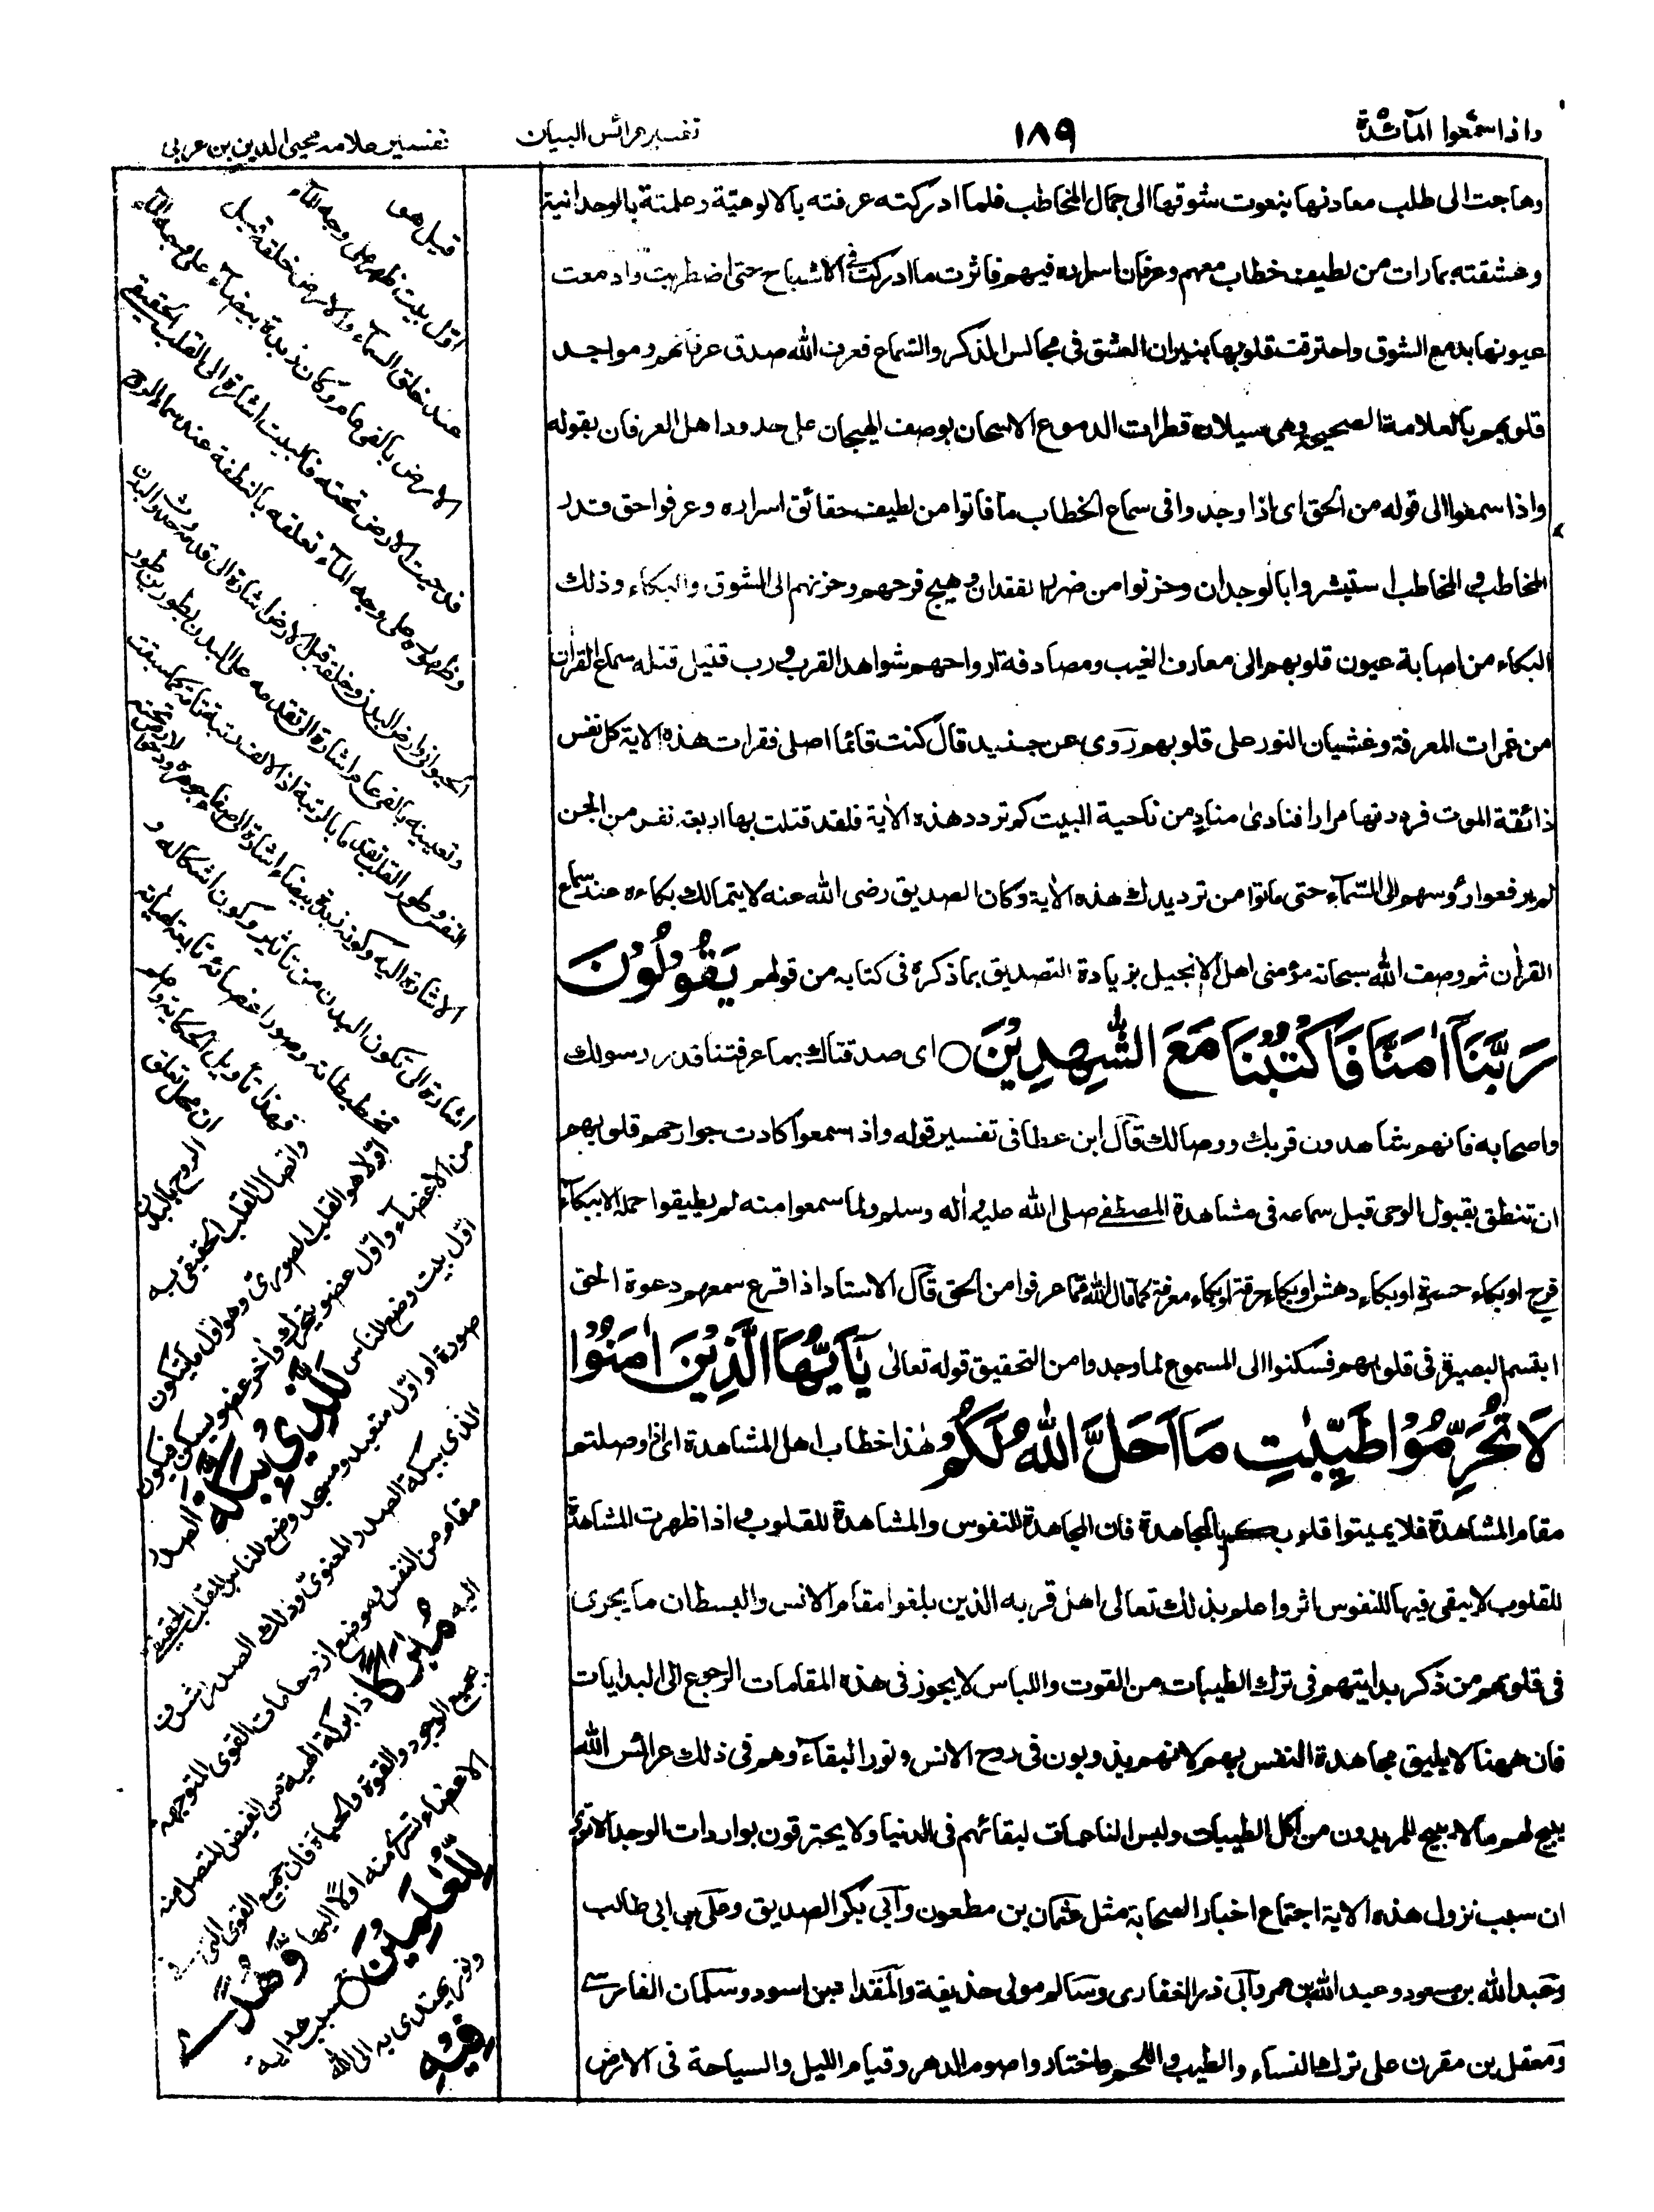 واذا سمعوا المآئدة
١٨٩
تفسير عرائس البيان
تفسير علامه محيى الدين بن عربى
وهاجت الى طلب معادنها بنعوت شوقها الى جمال المخاطب فلما ادركته عرفته بالالوهيّة وعلمته بالوحدانية
وعشقته بمارات من لطيف خطاب معهم وعرفان اسراره فيهم فاثرت ما ادركت فى الاشباح حتى اضطربت وادمعت
عيونها بدمع الشوق واحترقت قلوبها بنيران العشق فى مجالس الذكر والسّماع فعرف الله صدق عرفانهم ومواجد
قلوبهم بالعلامة الصحيحة وهى سيلان قطرات الدموع الاسجان بوصف الهيجان على خدود اهل العرفان بقوله
واذا سمعوا الى قوله من الحق اى اذا وجدوا فى سماع الخطاب ما فاتوا من لطيف حقائق اسراره وعرفوا حق قدر
المخاطب فى المخاطب استبشروا بالوجدان وحزنوا من ضرب الفقدان وهيج فرحهم وحزنهم الى الشوق والبكاء وذلك
البكاء من اصابة عيون قلوبهم الى معارف الغيب ومصادفة ارواحهم شواهد القرب ورب قتيل قتله سماع القرأن
من غمرات المعرفة وغشيان النور على قلوبهم روى عن جنيد قال كنت قائما اصلى فقرات هذه الاية كل نفس
ذائقة الموت فرددتها مرارا فنادى منادٍ من ناحية البيت كم تردد هذه الأية فلقد قتلت بها اربعة نفر من الجن
لم يرفعوا رؤسهم الى السّمآء حتى ماتوا من ترديدك هذه الأية وكان الصديق رضى الله عنه لا يتمالك بكاءه عند سماع
القرأن ثم وصف الله سبحانه مؤمنى اهل الانجيل بزيادة التصديق بما ذكره فى كتابه من قولهم يَقُوْلُوْنَ
رَبَّنَآ اٰمَنَّا فَاكْتُبْنَا مَعَ الشّٰهِدِيْنَ ○ اى صدقناك بما عرفتنا قدر رسولك
واصحابه فانهم شاهدون قربك ووصالك قال ابن عطا فى تفسير قوله واذا سمعوا كادت جوارحهم قلوبهم
ان تنطق بقبول الوحى قبل سماعه فى مشاهدة المصطفى صلى الله عليه واٰله وسلم ولما سمعوا منه لم يطيقوا حمله الا ببكآء
فرح او بكاء حسرة او بكاء دهش او بكاء حرقة او بكاء معرفة كما قال الله مما عرفوا من الحق قال الاستاد اذا قرع سمعهم دعوة الحق
ابتسم البصيرة فى قلوبهم فسكنوا الى المسموع لما وجدوا من التحقيق قوله تعالى يٰٓاَيُّهَا الَّذِيْنَ اٰمَنُوْا
لَا تُحَرِّمُوْا طَيِّبٰتِ مَآ اَحَلَّ اللّٰهُ لَكُمْ هٰذا خطاب اهل المشاهدة اى اذ وصلتم
مقام المشاهدة فلا يميتوا قلوبكم بالمجاهدة فان المجاهدة للنفوس والمشاهدة للقلوب فى اذا ظهرت المشاهدة
للقلوب لا يبقى فيها للنفوس اثر واعلم بذلك تعالى اهل قربه الذين بلغوا مقام الانس والبسطان ما يجرى
فى قلوبهم من ذكر بدايتهم فى ترك الطيبات من القوت واللباس لا يجوز فى هذه المقامات الرجوع الى البدايات
فان ههنا لا يليق مجاهدة النفس بهم لانهم يذوبون فى روح الانس ونور البقاء وهم فى ذلك عرائس الله
يبيح لهم ما لا يبيح للمريدون من اكل الطيبات ولبس الناعمات لبقائهم فى الدنيا ولا يحترقون بواردات الوجد الا ترى
ان سبب نزول هذه الاية اجتماع اخبار الصحابة مثل عثمان بن مظعون وابى بكر الصديق وعلى بن ابى طالب
وعبد الله بن مسعود وعبد الله بن عمر وابى ذر الغفارى وسالم مولى حذيفة والمقداد بن اسود وسلمان الفارسى
ومعقل بن مقرن على ترك النساء والطيب واللحم واختاروا صوم الدهر وقيام الليل والسياحة فى الارض
قيل هو
اوّل بيت ظهر على وجه المآء
عند خلق السمآء والارض خلقه قبل
الارض بالفى عام وكان زبدة بيضآء على وجه المآء
فدحيت الارض تحته فالبيت اشارة الى القلب الحقيقى
وظهوره على وجه المآء تعلقه بالنطفة عند سماء الروح
الحيوانى وارض البدن وخلقه قبل الارض اشارة الى قدمه وحدوث البدن
وتعيينه بالفى عام اشارة الى تقدمه على البدن بطورين طور
النفس وطور القلب تقدما بالرتبة اذ الالف رتبة تامة كما سبقت
الاشارة اليه وكونه زبدة بيضاء اشارة الى صفاء جوهره ودحو الارض تحته
اشارة الى تكون البدن من تاثيره وكون اشكاله و
تخطيطاته وصور اعضائه تابعة لهيأته
فهذا تأويل الحكاية واعلم
ان محل تعلق
الروح بالبدن
واتصال القلب الحقيقى به
اوّلا هو القلب الصورى وهو اوّل ما يتكون
من الاعضآء واوّل عضو يتحرك وأخر عضو يسكن فيكون
اوّل بيت وضع للناس لَلَّذِيْ بِبَكَّةَ الصدر
صورة او اوّل متعبد ومسجد وضع للناس للقلب الحقيقى
الذى ببكة الصدر المعنوى وذلك الصدر اشرف
مقام من النفس وموضع ازدحامات القوى المتوجهة
اليه مُبٰرَكًا ذا بركة الهية من الفيض المتصل منه
جميع الوجود والقوة والحياة فان جميع القوى التى فى
الاعضاء تسرى منه اولا اليها وَّهُدًى
لِّلْعٰلَمِيْنَ ○ سبب هداية
ونور يهتدى به الى الله
فِيْهِ